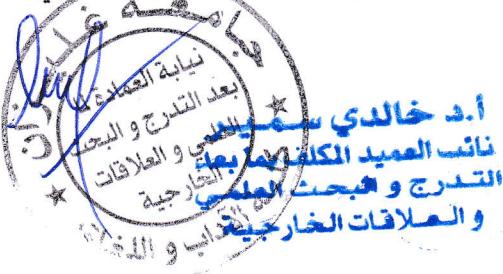 جامعة غليزان
نيابة العمادة لما
بعد التدرج و البحث
العلمي و العلاقات
الخارجية
كلية الآداب و اللغات
أ.د خالدي سمير
نائب العميد المكلف بما بعد
التدرج و البحث العلمي
و العلاقات الخارجية